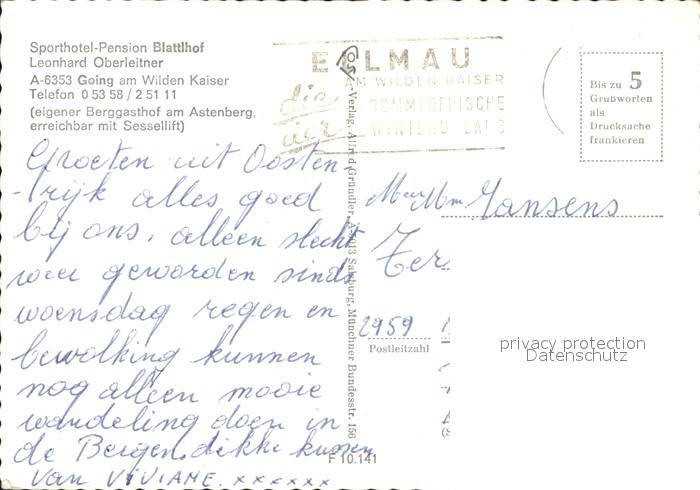 Sporthotel-Pension Blattlhof
Leonhard Oberleitner
A-6353 Going am Wilden Kaiser
Telefon 0 53 58 / 2 51 11
(eigener Berggasthof am Astenberg,
erreichbar mit Sessellift)
ELLMAU
AM WILDEN KAISER
die SOMMERFRISCHE
der WINTERURLAUB
Bis zu 5
Grußworten
als
Drucksache
frankieren
Groeten uit Oosten-
-rijk alles goed
bij ons, alleen slecht
weer geworden sinds
woensdag regen en
bewolking kunnen
nog alleen mooie
wandeling doen in
de Bergen, dikke kussen
van VIVIANE. xxxxxx
-Verlag, Alfred Gründler, A-5013 Salzburg, Münchner Bundesstr. 156
Jansens
Ter
2959
Postleitzahl
privacy protection
Datenschutz
F 10.141